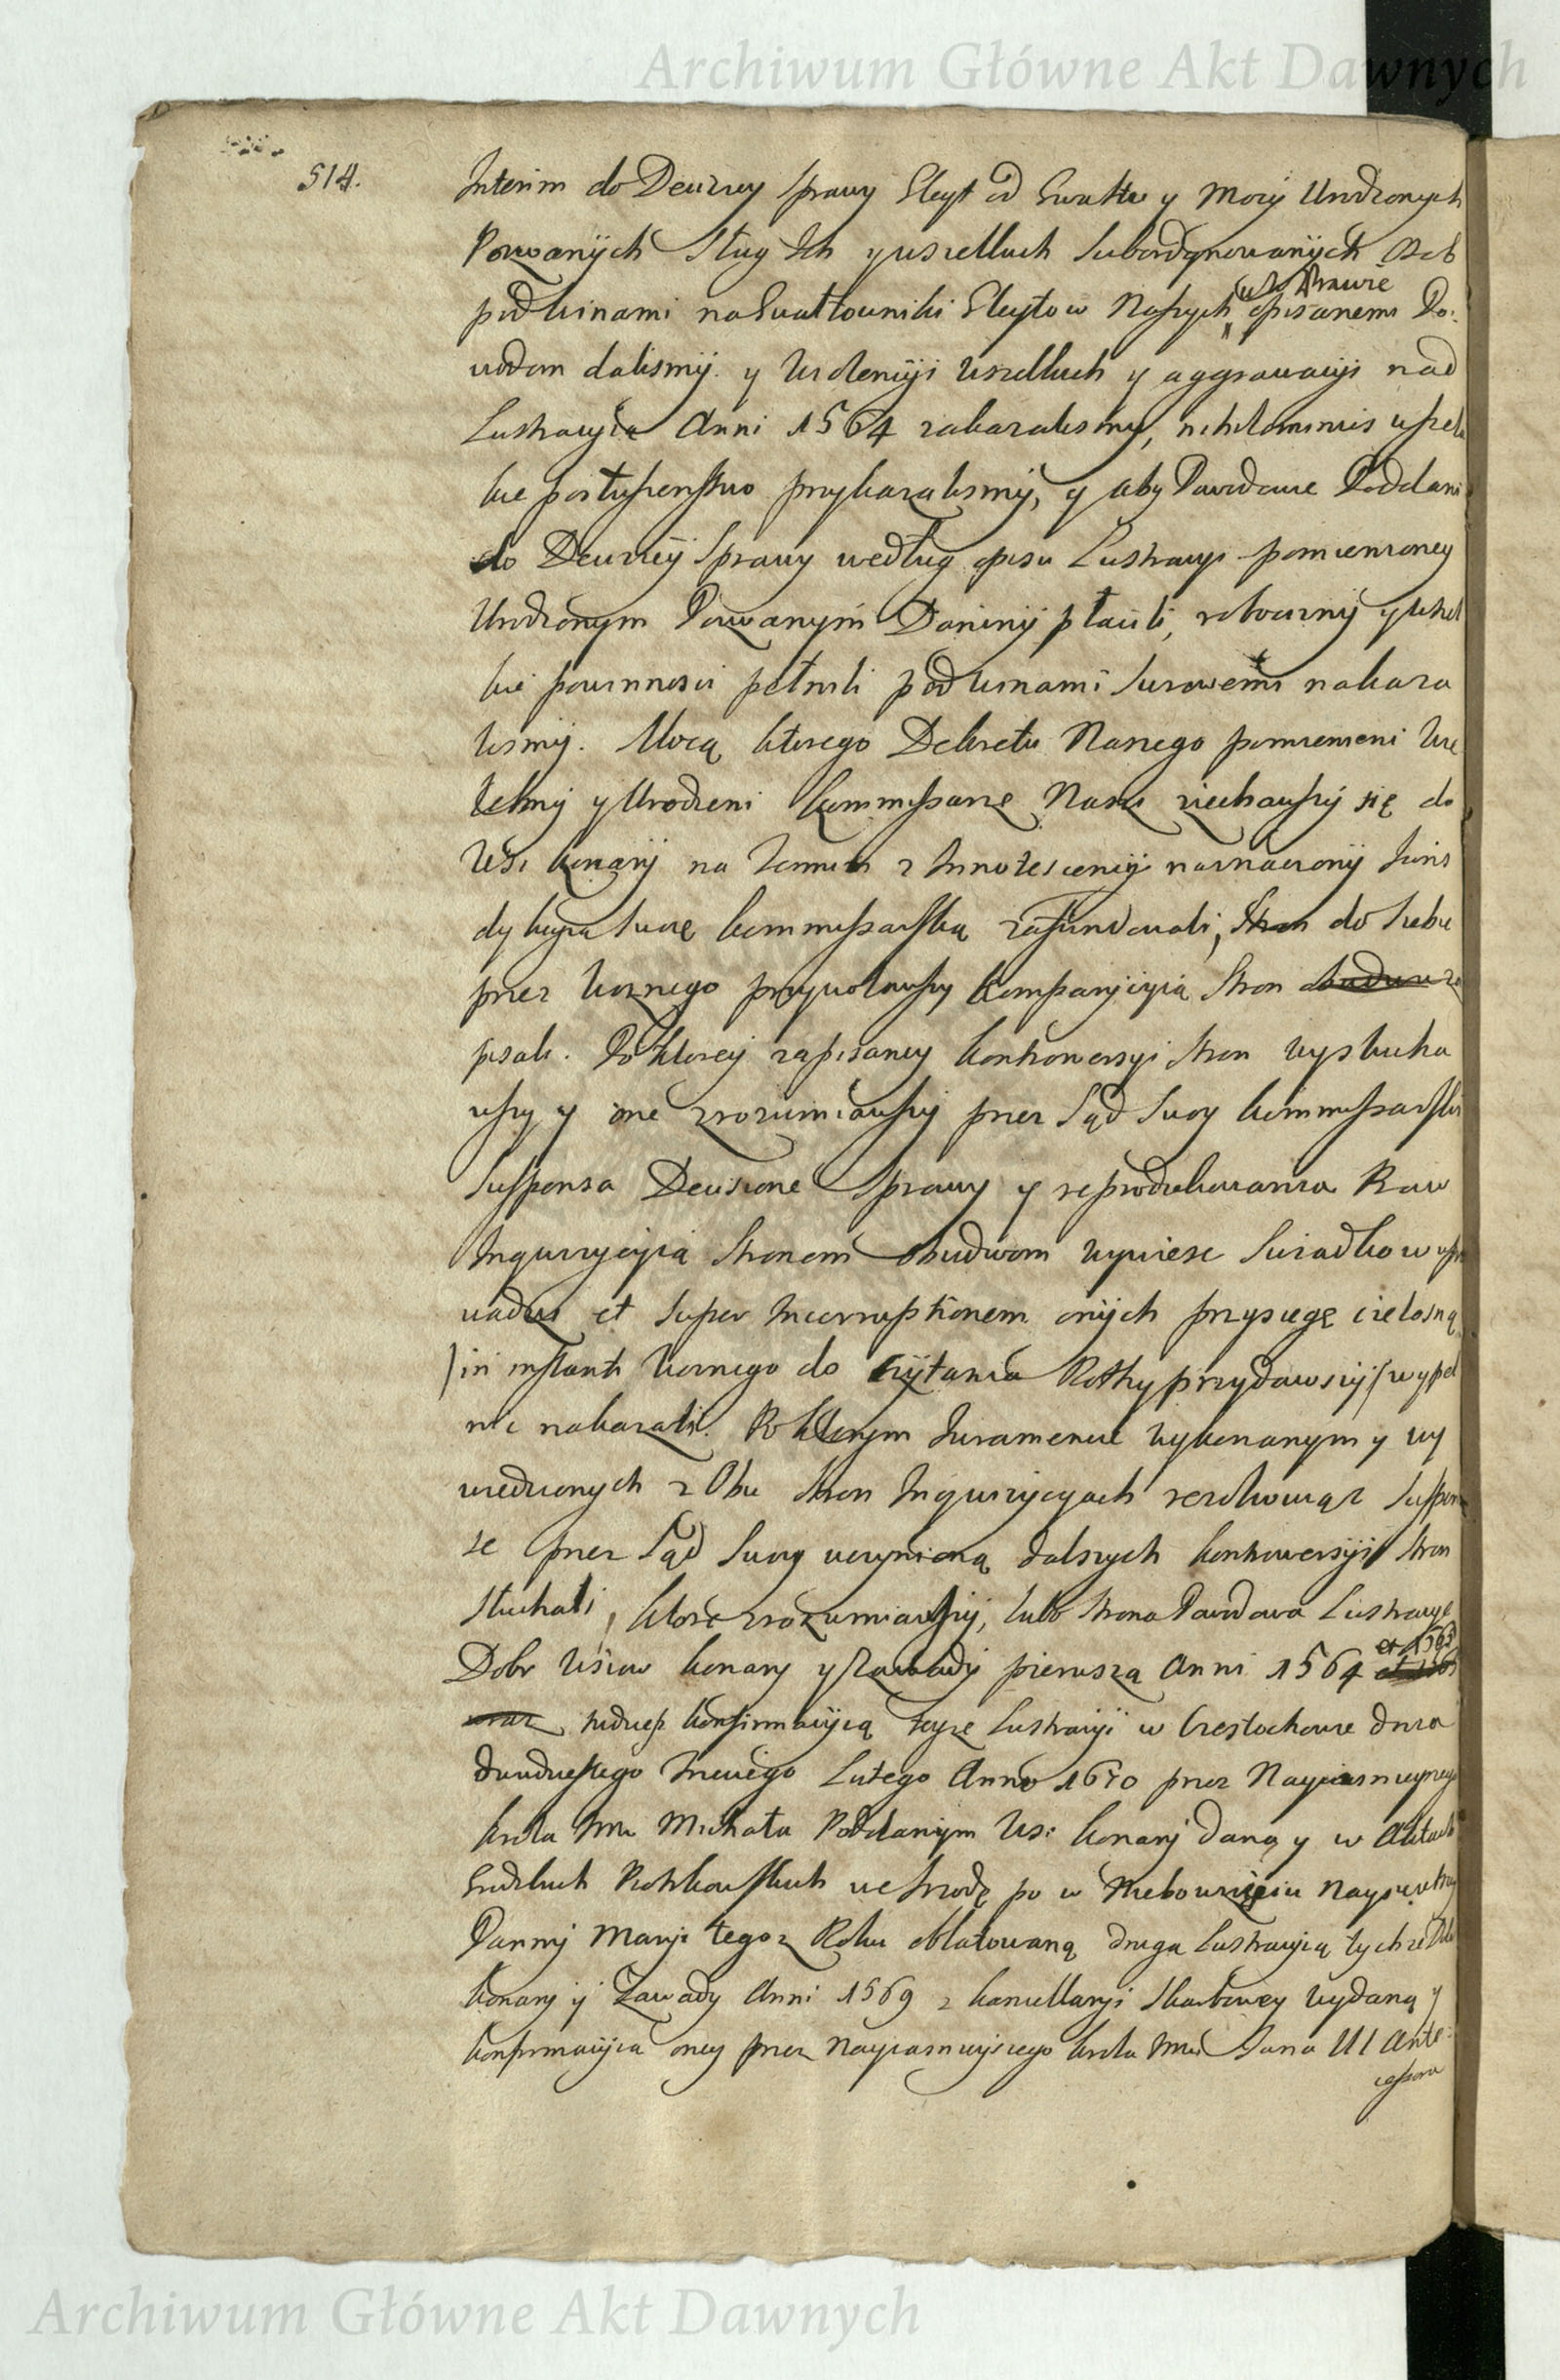 Archiwum Główne Akt Dawnych
514.
Interim do Decizyey Sprawy Gleyt od Gwałtu y Mocy Urodzonych
Pozwanÿch Sług Ich y wszelkich Subordynowanÿch Osob
pod winami na Gwałtowniki Gleytow Naszych w Prawie opisanemi Po-
wodom dalismÿ. y Uciemięzi wszelkich y aggrawacÿi nad
Lustracyią Anni 1564 zakazalismy, nihilominus wszel
kie posłuszenstwo przykazalismÿ, y aby Powodowie Poddani
do Decizÿi Sprawy według opisu Lustracyi pomienioney
Urodzonym Pozwanym Daninÿ płacili, robociznÿ y wszel
kie powinnosci pełnili pod winami surowemi nakaza
lismÿ. Mocą ktorego Dekretu Naszego pomienieni Wie
lebnÿ y Urodzeni Kommissarze Nasi ziechawszÿ się do
Wsi Konarÿ na Termin z Innotescencÿi naznaczonÿ Juris
dykcyią swoię Kommissarską zafundowali, Stron do siebie
przez Woznego przywoławszy Komparycyią Stron obudwu za
pisali. Po ktorey zapisaney Kontrowersyi Stron wysłucha
wszy y one zrozumiawszÿ przez Sąd Swoy Kommissarski
Suspensa Decisione Sprawy y reprodukowania Praw
Inquizycyią Stronom obudwom wywiesc Swiadkow wpro
wadzic et super Incorruptionem onÿch przysięgę cielesną
/in instanti Woznego do czÿtania Rothy przydawszÿ/ wypeł
nic nakazali. Po ktorym Juramencie wykonanym y wy
wiedzionych z Obu Stron Inquizycyach rezolwuiąc Suspen
sę przez Sąd Swoy uczynioną dalszych kontrowersÿi Stron
słuchali, ktore zrozumiawszÿ, lubo Strona Powodowa Lustracyę
Dobr Wsiow Konary y Zawadÿ pierwszą Anni 1564 et 1565
oraz tudziesz konfirmacÿią teyze Lustracÿi w Częstochowie dnia
dwudziestego trzeciego Lutego Anno 1670 przez Nayiasnieyszego
Krola Jmci Michała Poddanÿm Wsi Konarÿ daną y w Aktach
Grodzkich Piotrkowskich we Srodę po w Niebowzięciu Nayswiętszey
Pannÿ Maryi tegoz Roku oblatowaną druga Lustracyią tychze Dobr
Konarÿ ÿ Zawady Anni 1569 z Kancellaryi Skarbowey wydaną y
konfirmacÿią oney przez Nayiasnieyszego Krola Jmci Jana III Ante-
cessora
Archiwum Główne Akt Dawnych